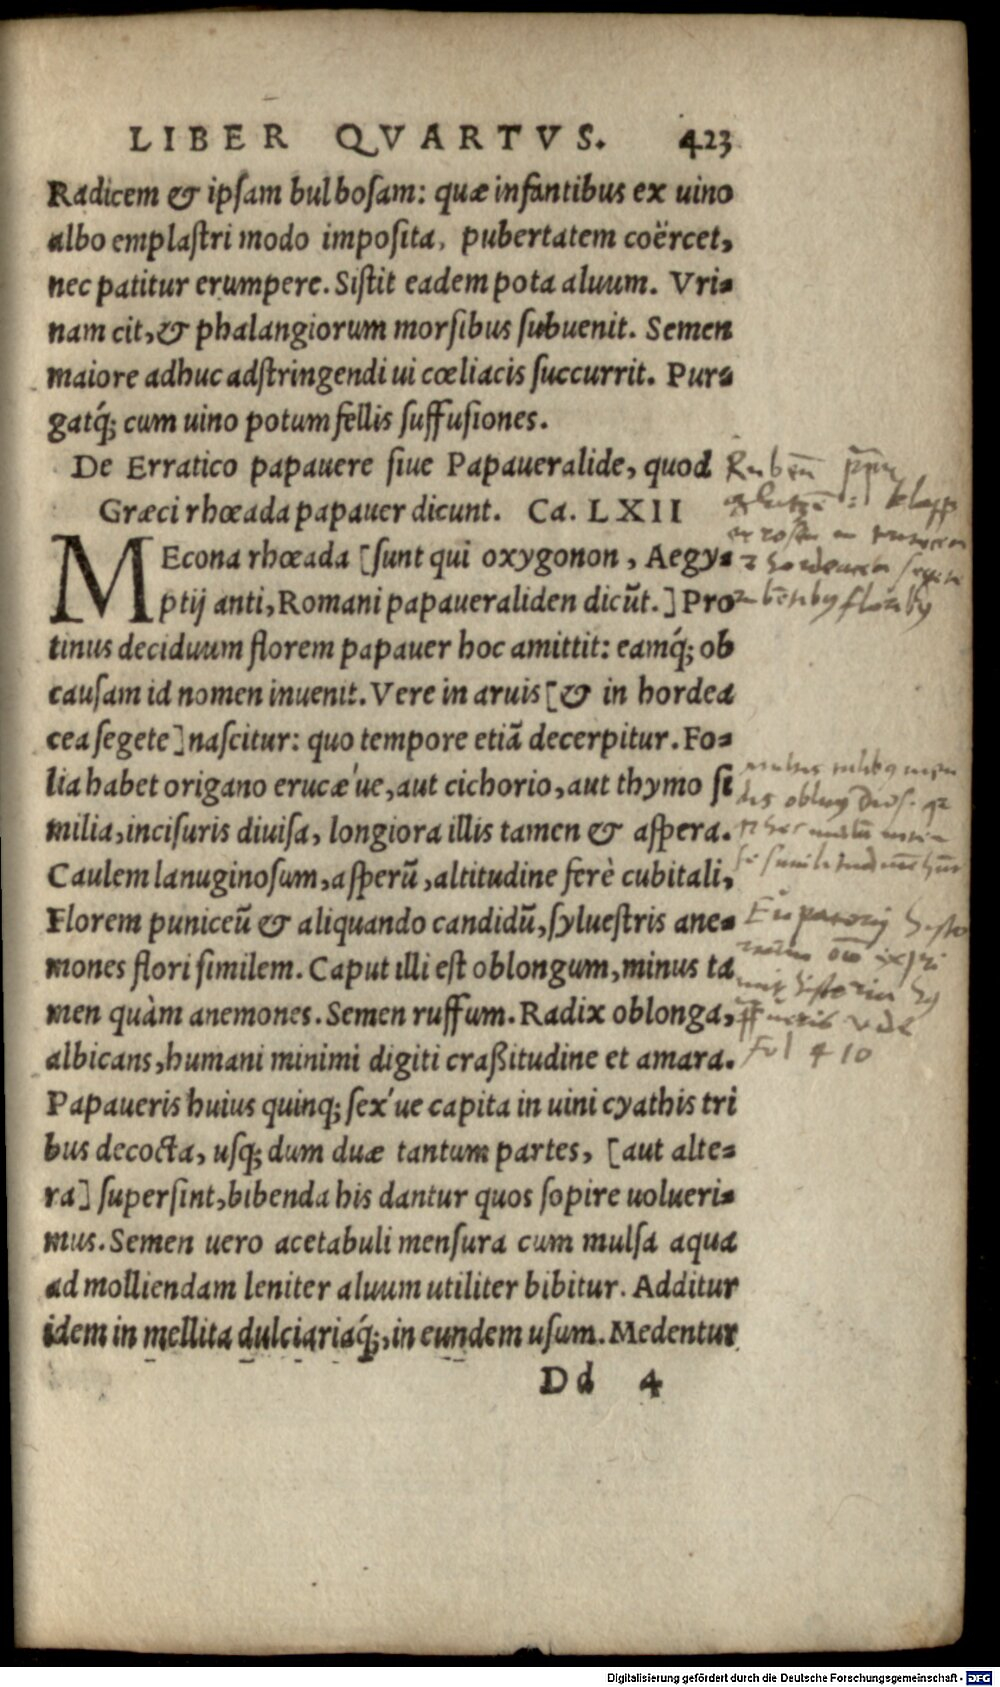 LIBER QVARTVS. 423
Radicem & ipſam bulboſam: quæ infantibus ex uino
albo emplaſtri modo impoſita, pubertatem coërcet,
nec patitur erumpere. Siſtit eadem pota aluum. Vri-
nam cit, & phalangiorum morſibus ſubuenit. Semen
maiore adhuc adſtringendi ui cœliacis ſuccurrit. Pur-
gatq́; cum uino potum fellis ſuffuſiones.
De Erratico papauere ſiue Papaueralide, quod
Græci rhœada papauer dicunt. Ca. LXII
MEcona rhœada [ſunt qui oxygonon, Aegy-
ptij anti, Romani papaueraliden dicũt.] Pro
tinus deciduum florem papauer hoc amittit: eamq́; ob
cauſam id nomen inuenit. Vere in aruis [& in hordea
cea ſegete] naſcitur: quo tempore etiã decerpitur. Fo-
lia habet origano erucæ'ue, aut cichorio, aut thymo ſi
milia, inciſuris diuiſa, longiora illis tamen & aſpera.
Caulem lanuginoſum, aſperũ, altitudine ferè cubitali,
Florem puniceũ & aliquando candidũ, ſylueſtris ane-
mones flori ſimilem. Caput illi eſt oblongum, minus ta
men quàm anemones. Semen ruffum. Radix oblonga,
albicans, humani minimi digiti craßitudine et amara.
Papaueris huius quinq; ſex'ue capita in uini cyathis tri
bus decocta, uſq; dum duæ tantum partes, [aut alte-
ra] ſuperſint, bibenda his dantur quos ſopire uolueri-
mus. Semen uero acetabuli menſura cum mulſa aqua
ad molliendam leniter aluum utiliter bibitur. Additur
idem in mellita dulciariaq́;, in eundem uſum. Medentur
Dd 4
Fol 410
Digitalisierung gefördert durch die Deutsche Forschungsgemeinschaft - DFG